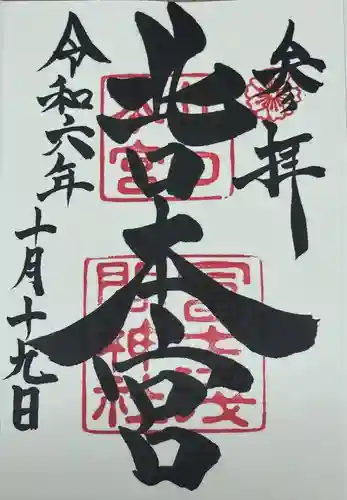 参拝
北口本宮
冨士浅間神社
令和六年十月十九日